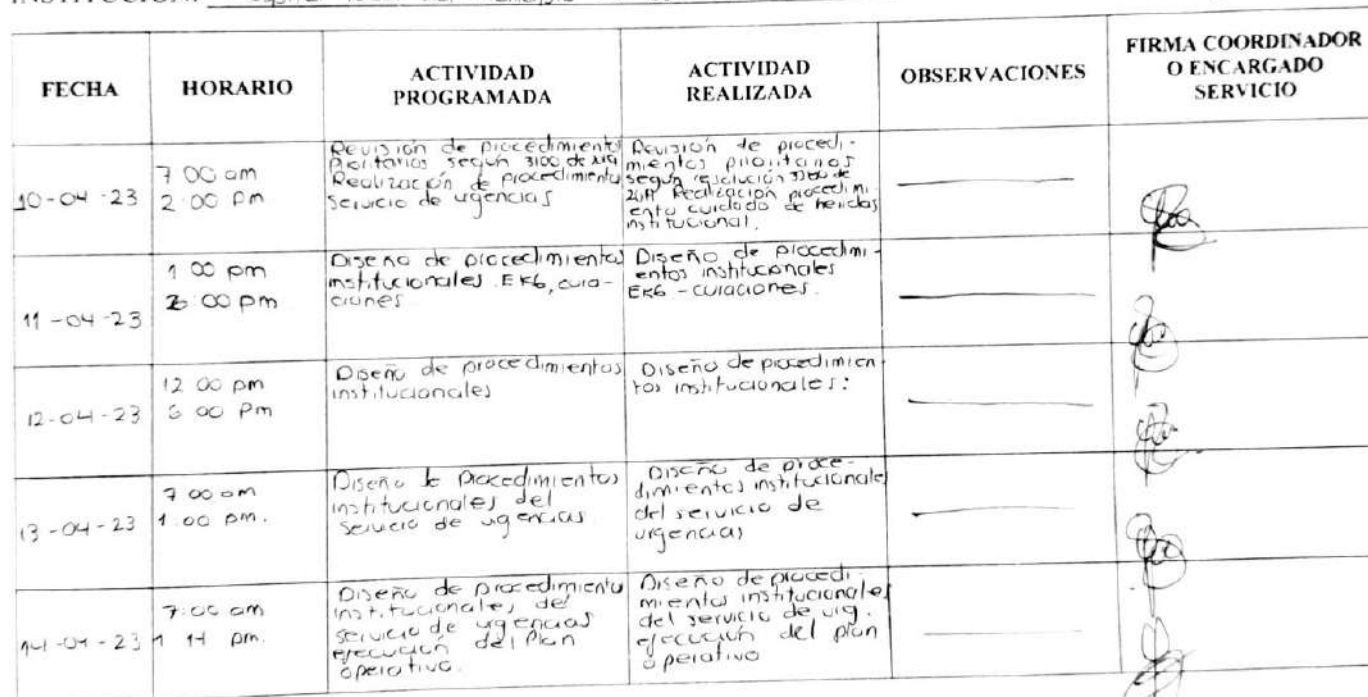 FECHA
HORARIO
ACTIVIDAD
PROGRAMADA
ACTIVIDAD
REALIZADA
OBSERVACIONES
FIRMA COORDINADOR
O ENCARGADO
SERVICIO
10-04-23
7 00 am
2:00 pm
Revisión de procedimientos
Prioritarios según 3100 de
Realización de procedimientos
servicio de urgencias
Revisión de procedi-
mientos prioritarios
según resolución 3100 de
Realización procedimi-
ento cuidado de heridas
institucional.
11-04-23
1 00 pm
:00 pm
Diseño de procedimientos
institucionales EKG, cura-
ciones.
Diseño de procedimi-
entos institucionales
EKG - curaciones.
12-04-23
12 00 pm
6 00 Pm
Diseño de procedimientos
institucionales
Diseño de procedimien
tos institucionales:
13-04-23
7 00 am
1:00 pm.
Diseño de Procedimientos
institucionales del
servicio de urgencias
Diseño de proce-
dimientos institucionales
del servicio de
urgencias
14-04-23
7:00 am
pm.
Diseño de procedimiento
institucionales del
servicio de urgencias
ejecución del Plan
operativo.
Diseño de procedi-
mientos institucionales
del servicio de urg.
ejecución del plan
operativo